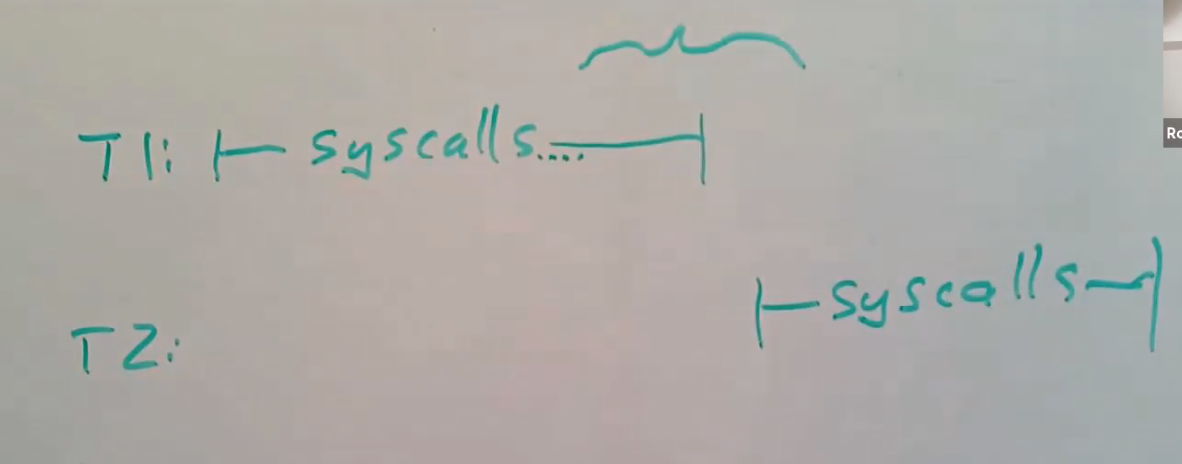 T1: |— syscalls....——|
|—syscalls—|
T2:
Ro